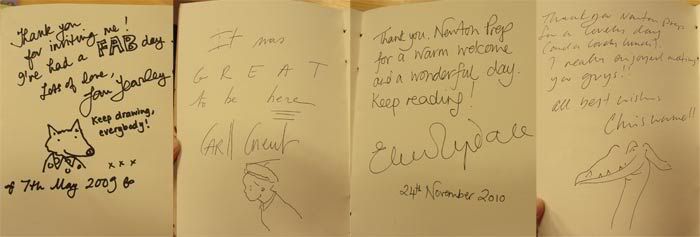 Thank you
for inviting me!
I've had a FAB day
Lots of love,
Jan Fearley
Keep drawing,
everybody!
x x x
7th May 2009
It was
G R E A T
to be here
CARll Cneut
Thank you, Newton Prep
for a warm welcome
and a wonderful day.
Keep reading!
24th November 2010
Thank you Newton Prep
for a lovely day
(and a lovely lunch!).
I really enjoyed meeting
you guys!!
all best wishes
Chris Wormell